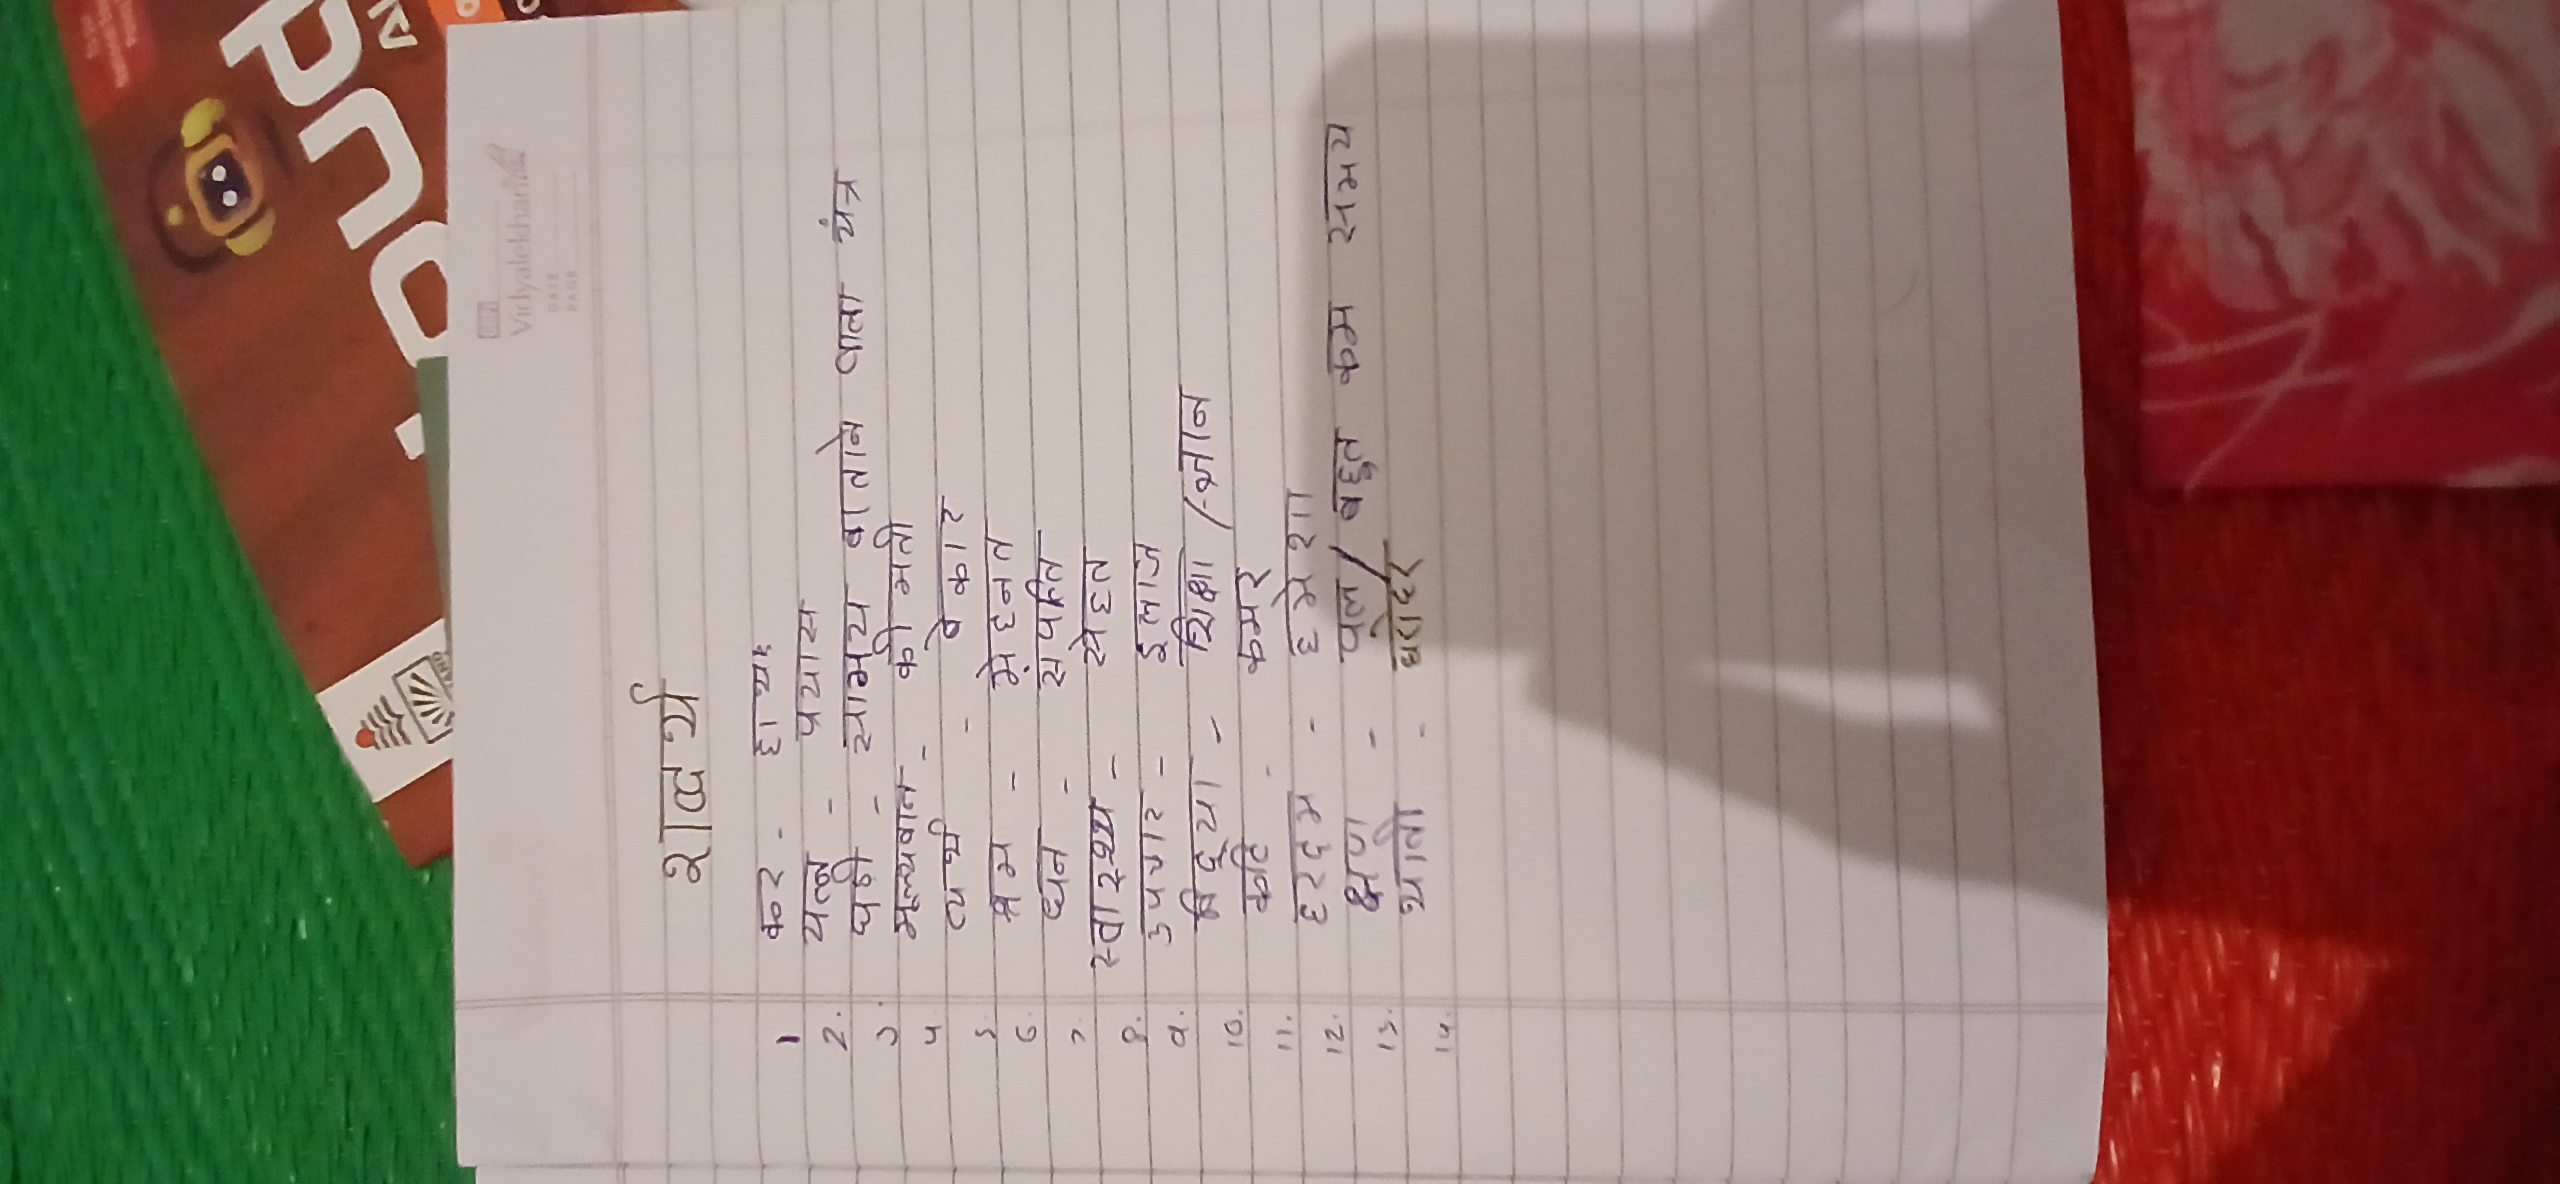 Vidyalekhan
DATE
PAGE
शब्दार्थ
1 कर - हाथ
2. यत्न - प्रयास
3. घड़ी - सामय बातने वाला यंत्र
4 मूल्यवान - कीमती
5 व्यर्थ - बेकार
6. श्रम - मेहनत
7 धन - संपत्ति
8. स्वास्थ्य - सेहत
9. उपचार - इलाज
10. विद्या - शिक्षा / ज्ञान
11. कटि - कमर
12. हरदम - हमेशा
13. क्षण - पल / बहुत कम समय
14. थाती - धरोहर